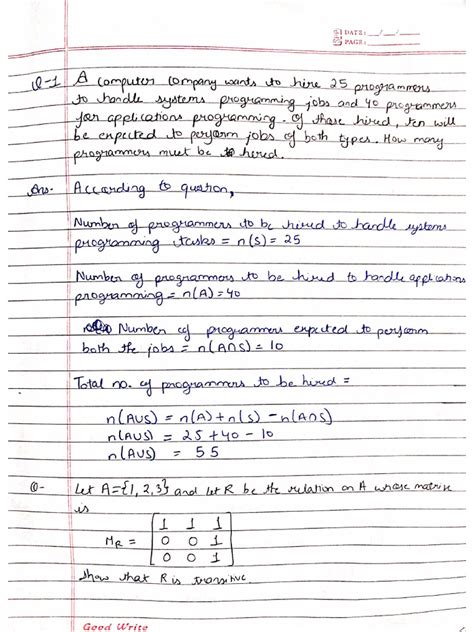 DATE: __/__/__
PAGE:
Q-1 A computer company wants to hire 25 programmers
to handle systems programming jobs and 40 programmers
for applications programming. Of those hired, ten will
be expected to perform jobs of both types. How many
programmers must be hired.
Ans- According to question,
Number of programmers to be hired to handle systems
programming tasks = n(S) = 25
Number of programmers to be hired to handle applications
programming = n(A) = 40
Number of programmers expected to perform
both the jobs = n(A∩S) = 10
Total no. of programmers to be hired =
n(A∪S) = n(A) + n(S) - n(A∩S)
n(A∪S) = 25 + 40 - 10
n(A∪S) = 55
Q- Let A={1, 2, 3} and let R be the relation on A whose matrix
is
1 1 1
M_R = 0 0 1
0 0 1
Show that R is transitive.
Good Write